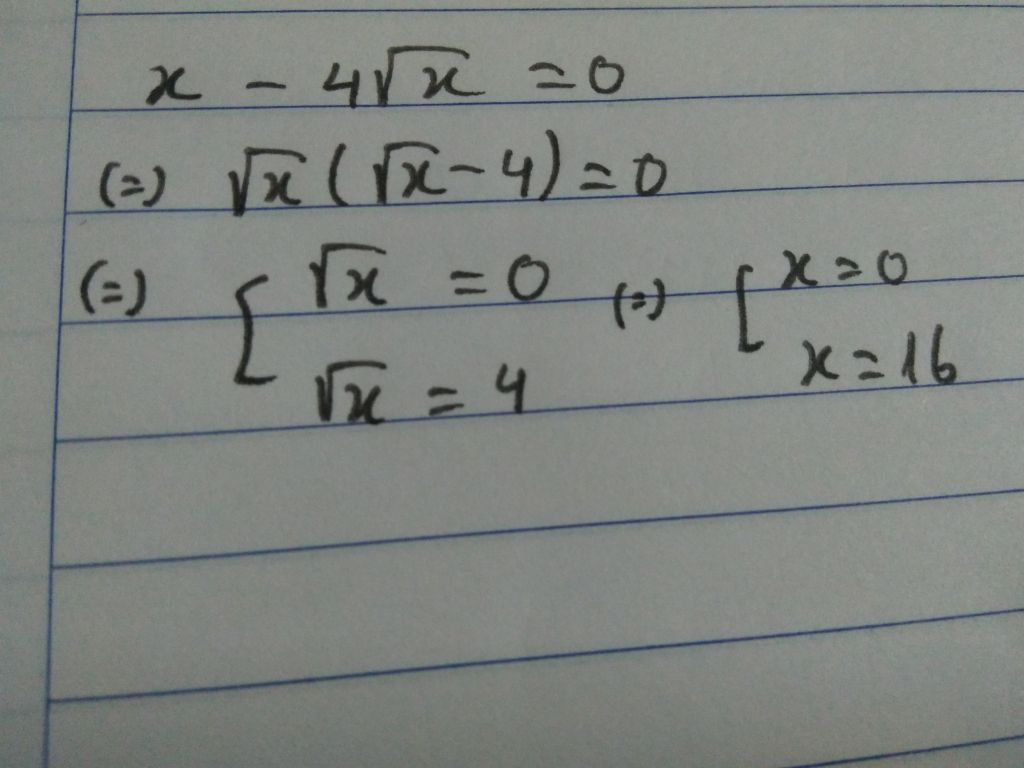 x - 4√x = 0
(=) √x (√x - 4) = 0
(=) [ √x = 0 (=) [ x = 0
√x = 4 x = 16